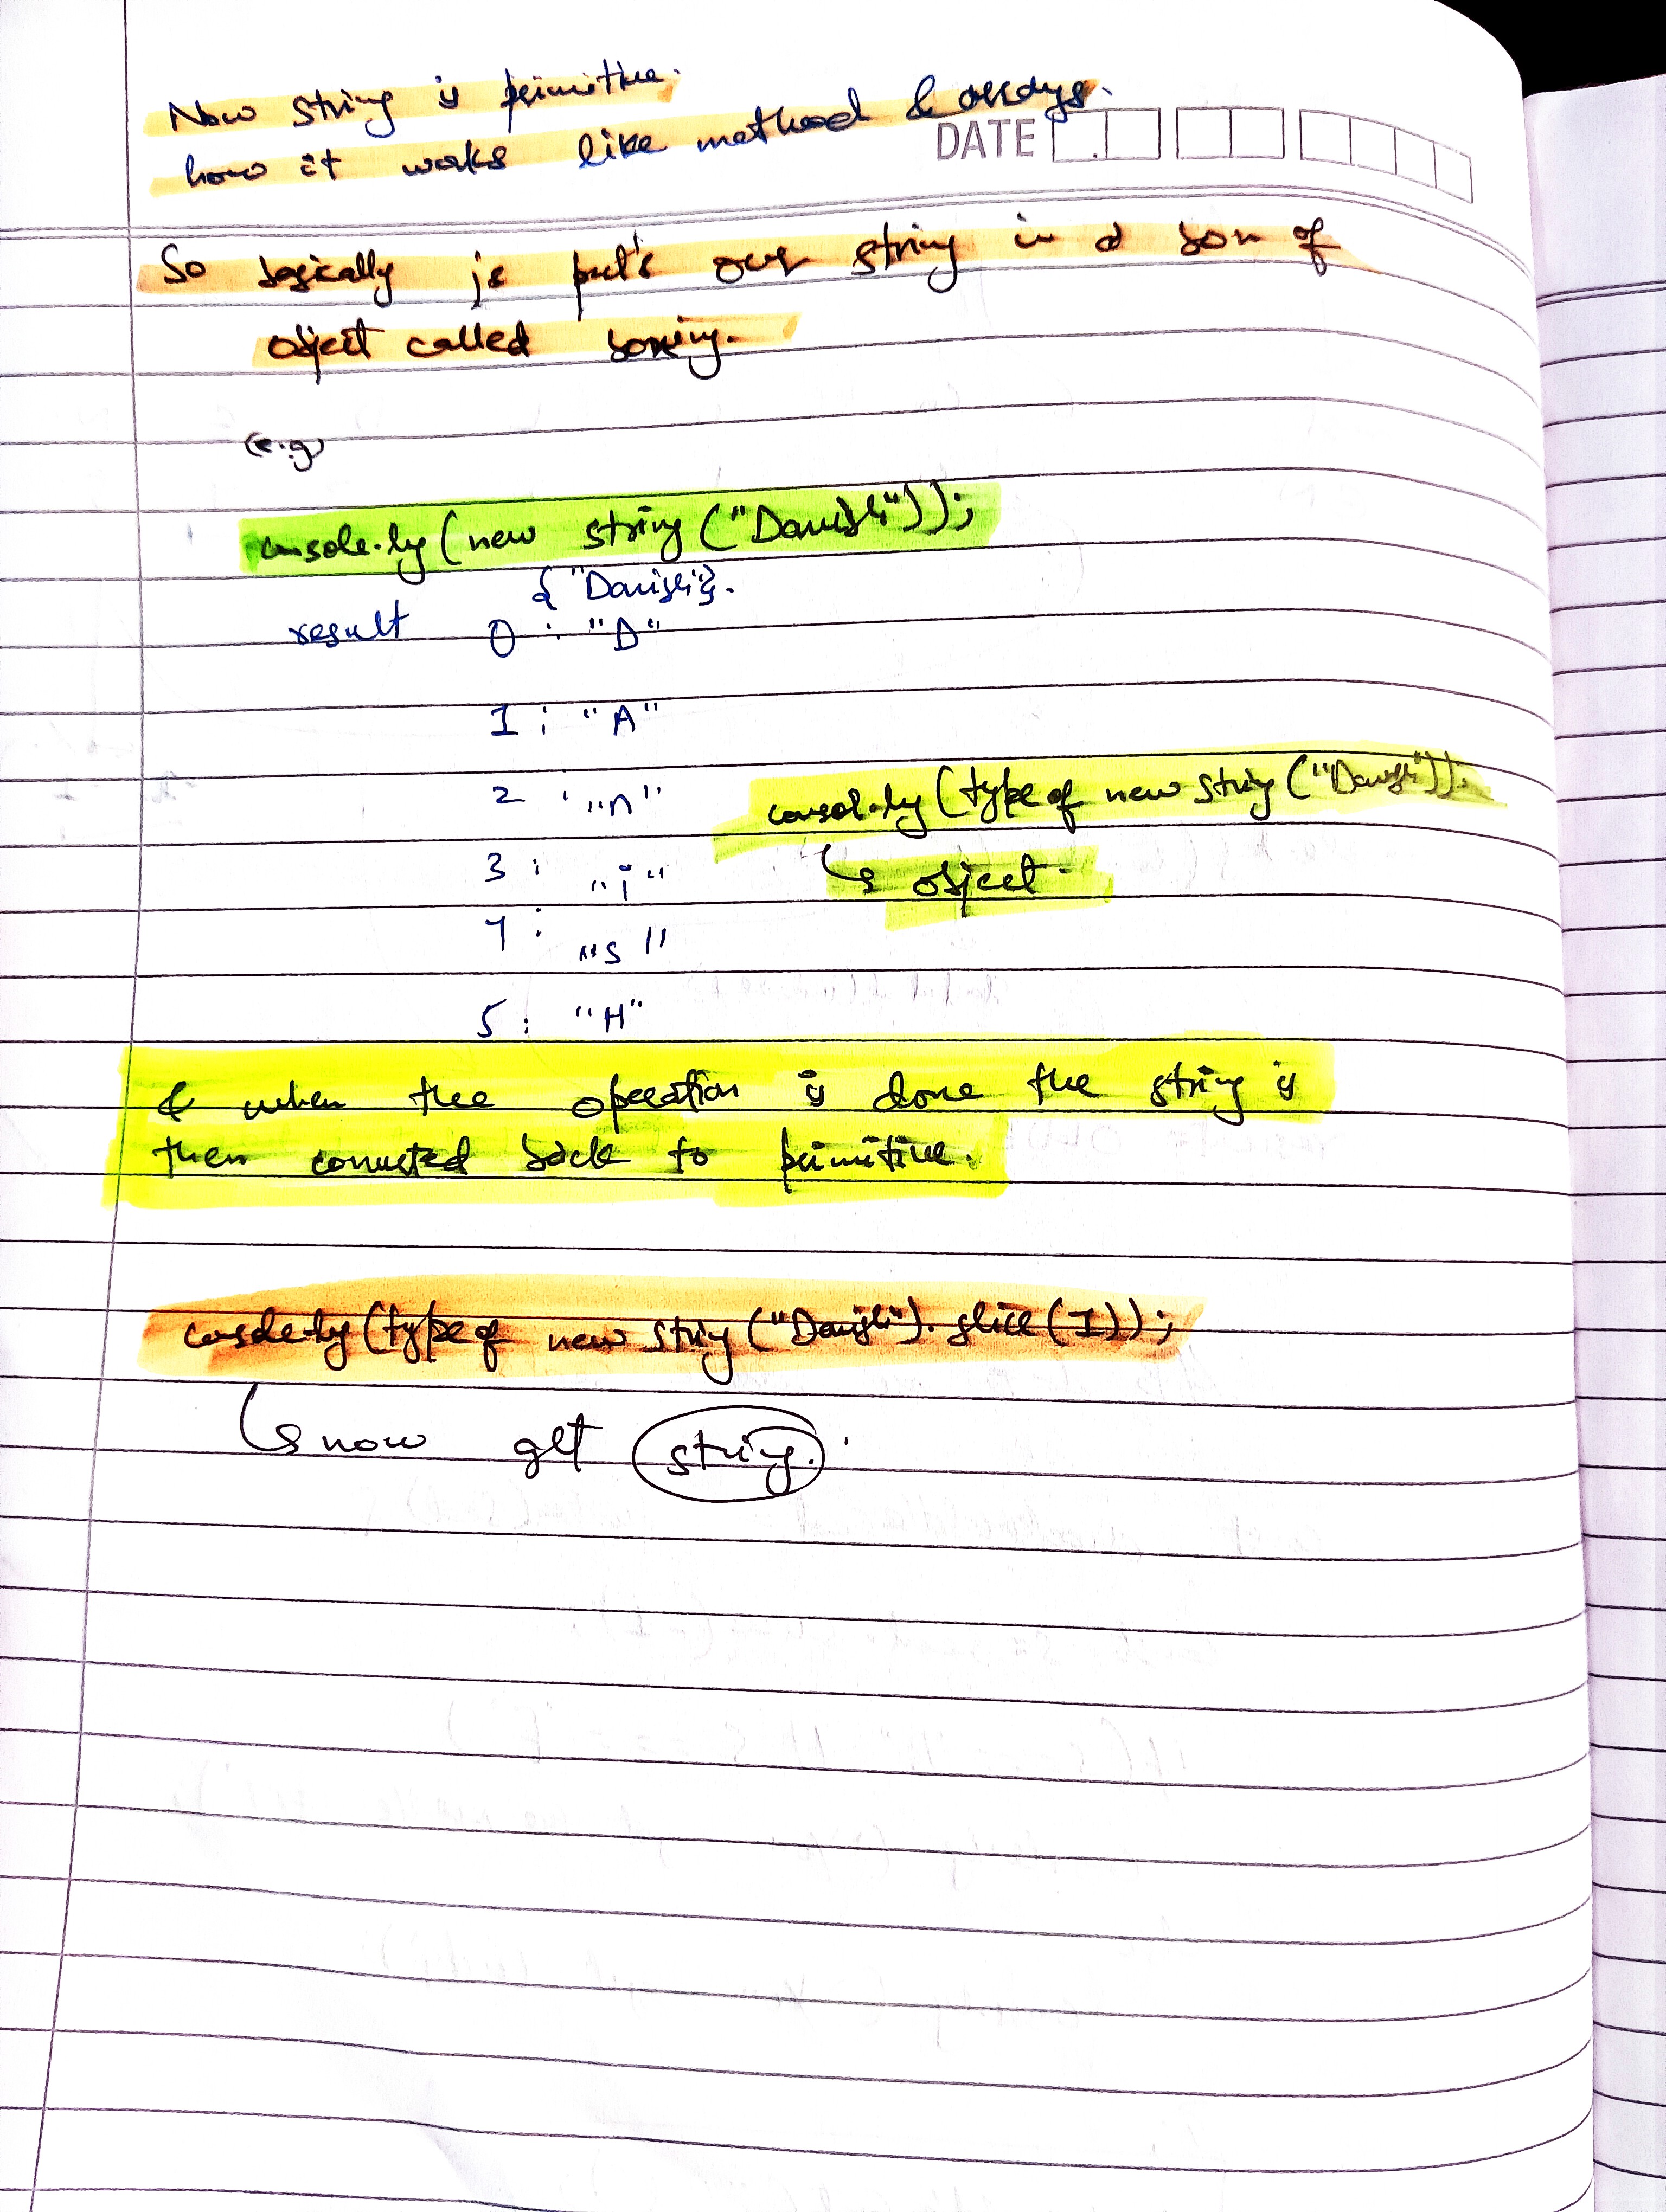 Now string is primitive.
how it works like method & arrays.
DATE
So basically js put's our string in a box of
object called boxing.
(e.g)
console.log (new string ("Danish"));
{"Danish"}.
result 0 : "D"
1 : "A"
2 : "n"
console.log (type of new string ("Danish"));
3 : "i"
↳ object.
4 : "s"
5 : "H"
& when the operation is done the string is
then converted back to primitive.
console.log (type of new string ("Danish").slice (1));
↳ now get string.